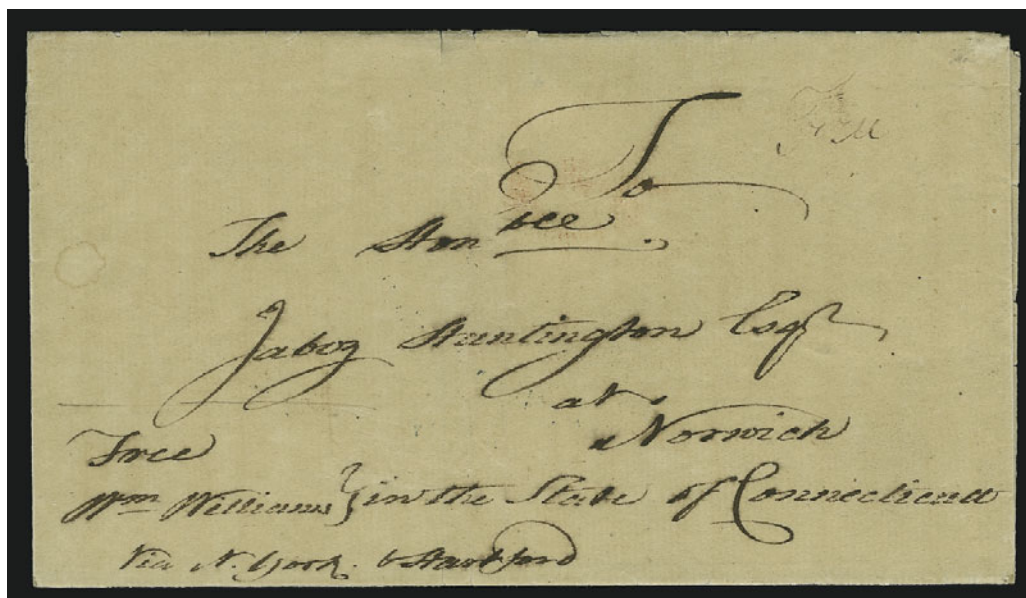 Free
To
The Honble
Jabez Huntington Esqr
at
Norwich
Free
Wm Williams } in the State of Connecticutt
Via N. York. & Hartford